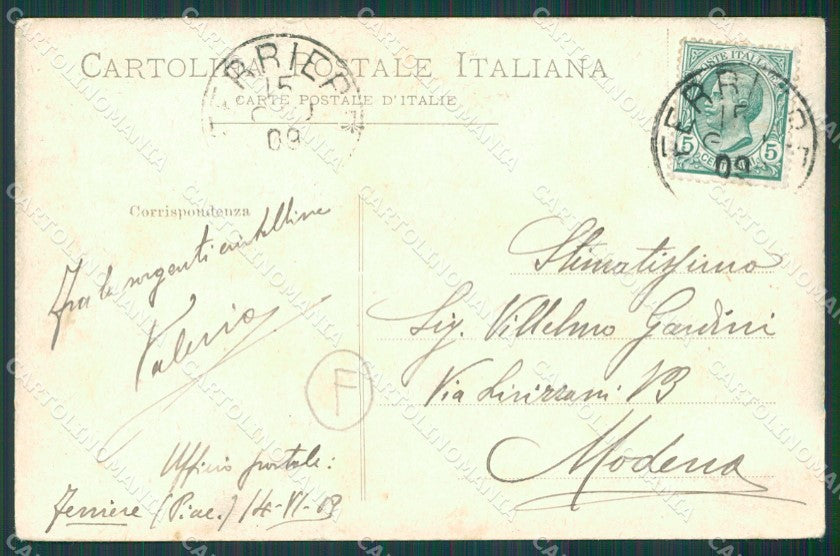 CARTOLINA POSTALE ITALIANA
CARTE POSTALE D'ITALIE
FERRIERE
15
09
POSTE ITALIANE
5 5
FERRIERE
15
09
Corrispondenza
Fra le sorgenti
Valerio
Ufficio postale:
Ferriere (Piac.) 14-VI-09
F
Stimatissimo
Sig. Villelmo Gardini
Via
Modena
CARTOLINOMANIA